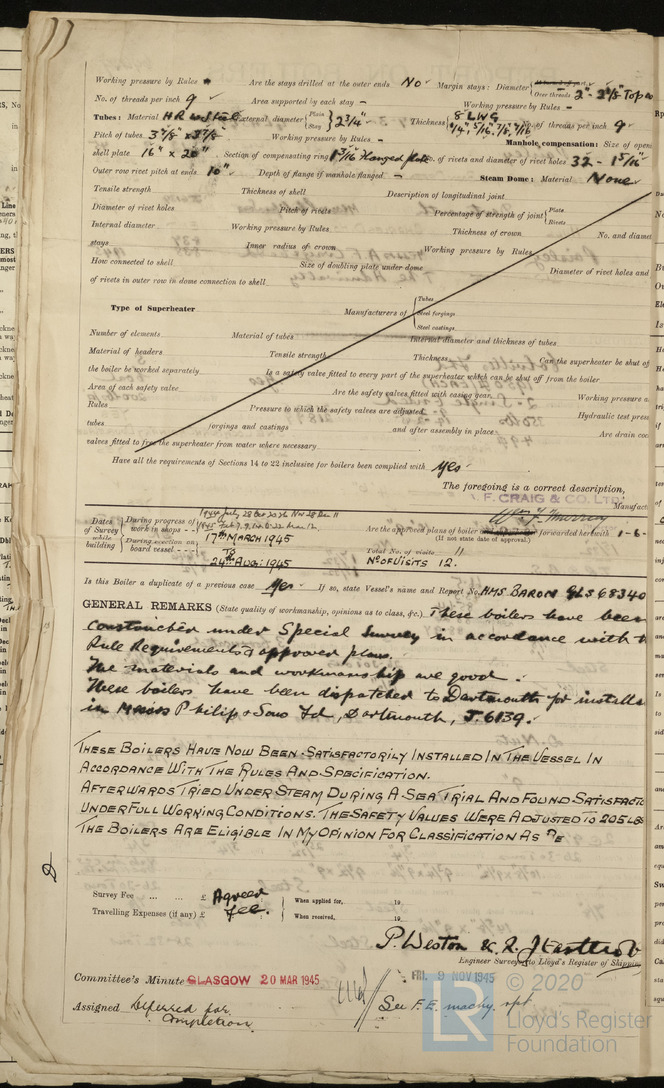 Working pressure by Rules Are the stays drilled at the outer ends No Margin stays: Diameter { Over threads 2"
No. of threads per inch 9 Area supported by each stay – Working pressure by Rules –
Tubes: Material External diameter { Plain Stay } 2 3/4" Thickness { 8 LWG No. of threads per inch 9
Pitch of tubes Working pressure by Rules – Manhole compensation: Size of
shell plate 16" x 20" Section of compensating ring No. of rivets and diameter of rivet holes 32 - 1 5/16
Outer row rivet pitch at ends 10" Depth of flange if manhole flanged – Steam Dome: Material None
Tensile strength Thickness of shell Description of longitudinal joint
Diameter of rivet holes Pitch of rivets Percentage of strength of joint { Plate Rivets
Internal diameter Working pressure by Rules Thickness of crown No. and
stays Inner radius of crown Working pressure by Rules
How connected to shell Size of doubling plate under dome Diameter of rivet holes and
of rivets in outer row in dome connection to shell
Type of Superheater Manufacturers of { Tubes Steel forgings Steel castings
Number of elements Material of tubes Internal diameter and thickness of tubes
Material of headers Tensile strength Thickness Can the superheater be shut of
the boiler be worked separately Is a safety valve fitted to every part of the superheater which can be shut off from the boiler
Area of each safety valve Are the safety valves fitted with easing gear Working pressure
Rules Pressure to which the safety valves are adjusted Hydraulic test
tubes forgings and castings and after assembly in place Are drain
valves fitted to free the superheater from water where necessary
Have all the requirements of Sections 14 to 22 inclusive for boilers been complied with Yes
The foregoing is a correct description,
F. CRAIG & CO. LTD.
Dates of Survey while building { During progress of work in shops - -
During erection on board vessel - - - 17TH MARCH 1945
TO
24TH AUG: 1945
Are the approved plans of boiler forwarded herewith 1-6-
(If not state date of approval.)
Total No. of visits 11
No OF VISITS 12.
Is this Boiler a duplicate of a previous case Yes If so, state Vessel's name and Report No. HMS BARON GLS 68340
GENERAL REMARKS (State quality of workmanship, opinions as to class, &c.) These boilers have been
constructed under Special Survey in accordance with
Rule Requirements & approved plans.
The materials and workmanship are good.
These boilers have been dispatched to Dartmouth for
in Messrs Philip & Sons Ld, Dartmouth, J.6139.
THESE BOILERS HAVE NOW BEEN SATISFACTORILY INSTALLED IN THE VESSEL IN
ACCORDANCE WITH THE RULES AND SPECIFICATION.
AFTERWARDS TRIED UNDER STEAM DURING A SEA TRIAL AND FOUND SATISFACTO
UNDER FULL WORKING CONDITIONS. THE SAFETY VALVES WERE ADJUSTED TO 205 LBS
THE BOILERS ARE ELIGIBLE IN MY OPINION FOR CLASSIFICATION AS
Survey Fee ... ... ... £ Agreed When applied for, 19
Travelling Expenses (if any) £ fee. When received, 19
P. Weston &
Engineer Surveyor to Lloyd's Register of Shipping
Committee's Minute GLASGOW 20 MAR 1945 FRI. 9 NOV 1945
Assigned Deferred for completion. See F.E. machy. rpt.
© 2020
LR
Lloyd's Register
Foundation